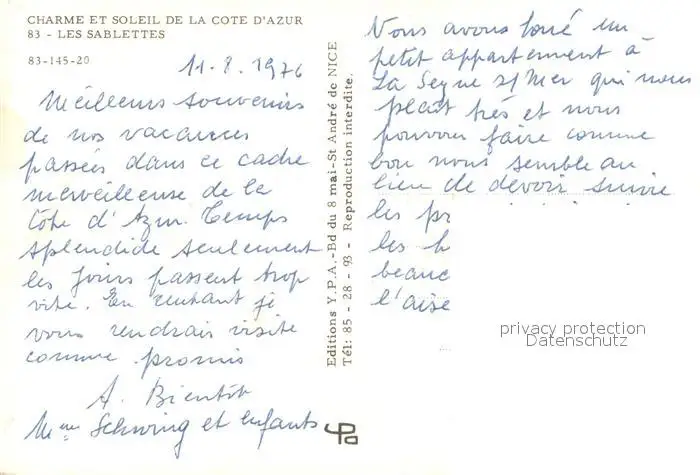 CHARME ET SOLEIL DE LA COTE D'AZUR
83 - LES SABLETTES
83-145-20
11.8.1976
Meilleurs souvenirs
de nos vacances
passées dans ce cadre
merveilleuse de la
Côte d'Azur. Temps
splendide seulement
les jours passent trop
vite. En rentrant je
vous rendrais visite
comme promis
A. Bientôt
Mme Schwing et enfants
Editions Y.P.A.-Bd du 8 mai-St André de NICE
Tél: 85 - 28 - 93 - Reproduction interdite.
Vous avons loué un
petit appartement à
La Seyne s/Mer qui nous
plait très et nous
pouvons faire comme
bon nous semble au
lieu de devoir suivre
les pr
les h
beauc
l'aise
privacy protection
Datenschutz